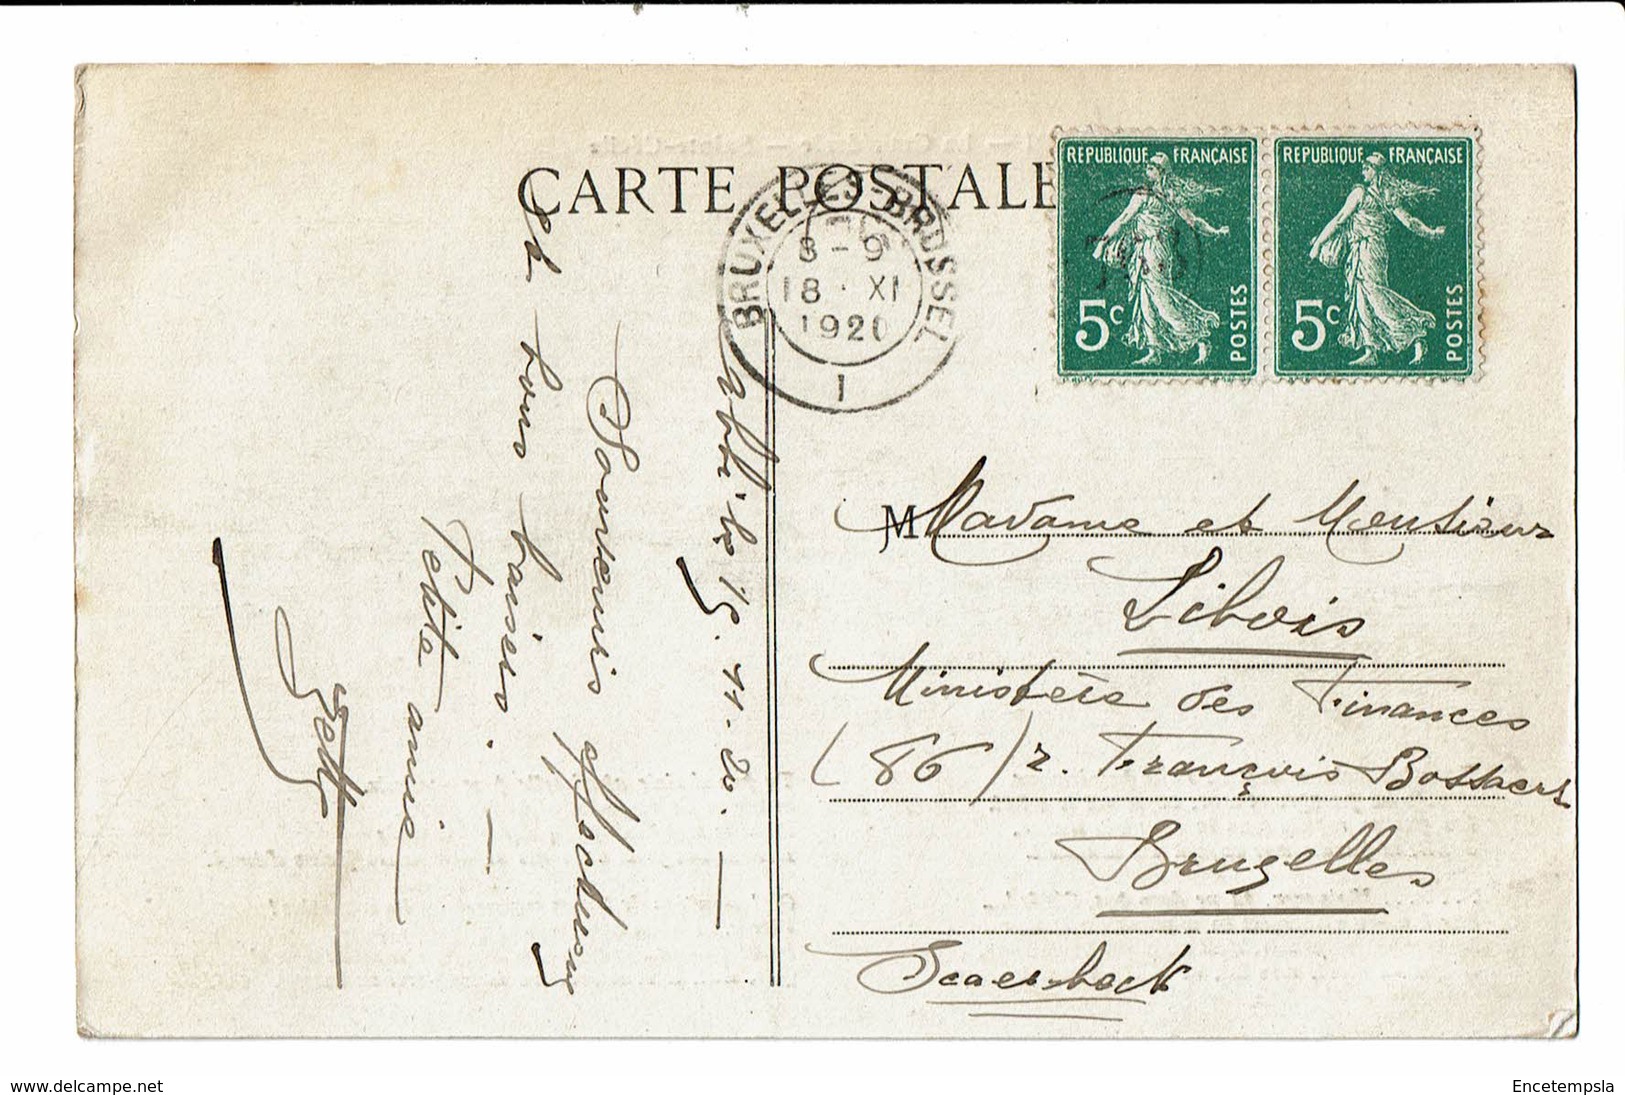 CARTE POSTALE
BRUXELLES-BRUSSEL
8-9
18 · XI
1920
1
REPUBLIQUE FRANÇAISE
5c
POSTES
REPUBLIQUE FRANÇAISE
5c
POSTES
le 15. 11. 20. —
Souvenirs affectueux
et bons baisers. —
Petite amie
M Madame et Monsieur
Libois
Ministère des Finances
(86) r. François Bossaert
Bruxelles
Scaerbeck
www.delcampe.net
Encetempsla